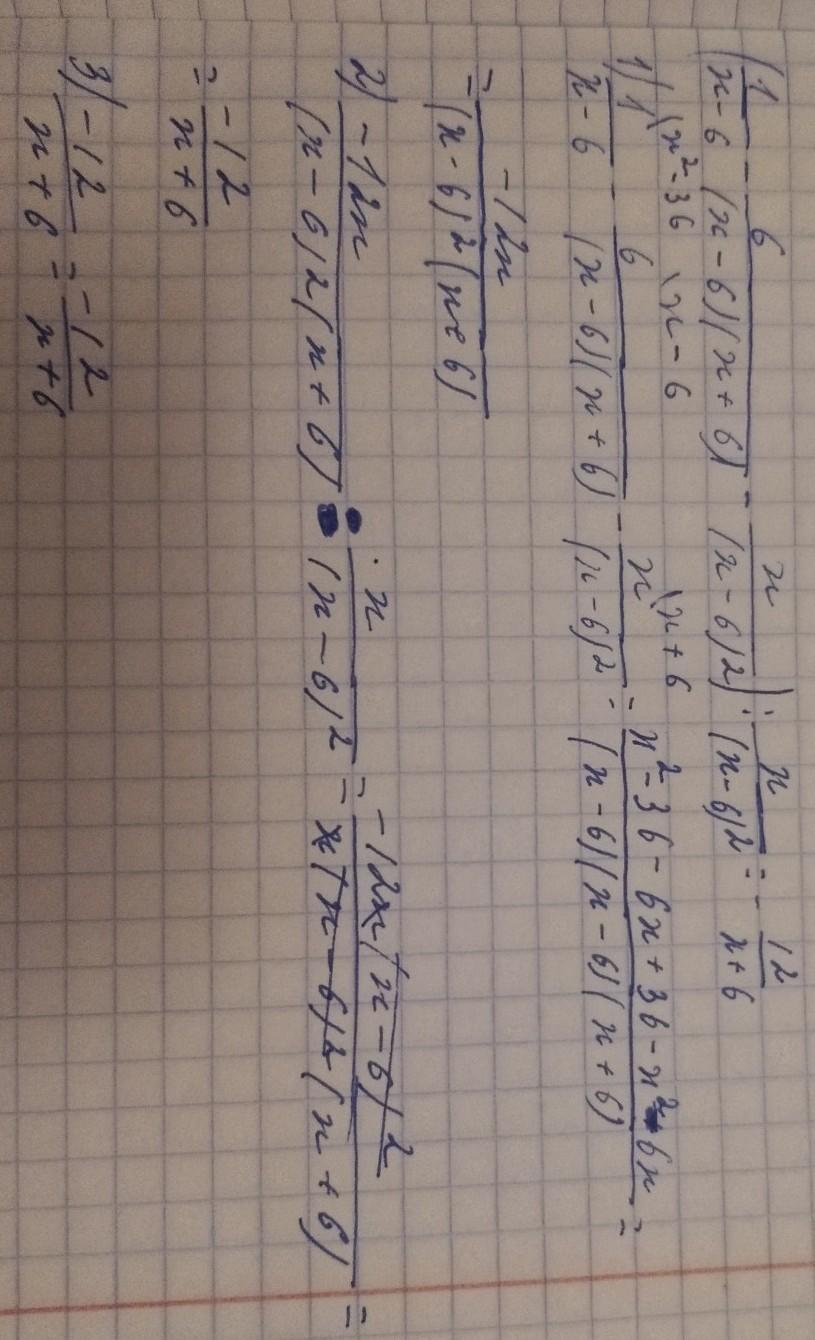 (1/(x-6) - 6/((x-6)(x+6)) - x/(x-6)²) : x/(x-6)² = -12/(x+6)
1) 1\x²-36/(x-6) - 6\x-6/((x-6)(x+6)) - x\x+6/(x-6)² = (x²-36-6x+36-x²-6x)/((x-6)(x-6)(x+6)) =
= -12x/((x-6)²(x+6))
2) -12x/((x-6)²(x+6)) : x/(x-6)² = -12x(x-6)²/(x(x-6)²(x+6)) =
= -12/(x+6)
3) -12/(x+6) = -12/(x+6)